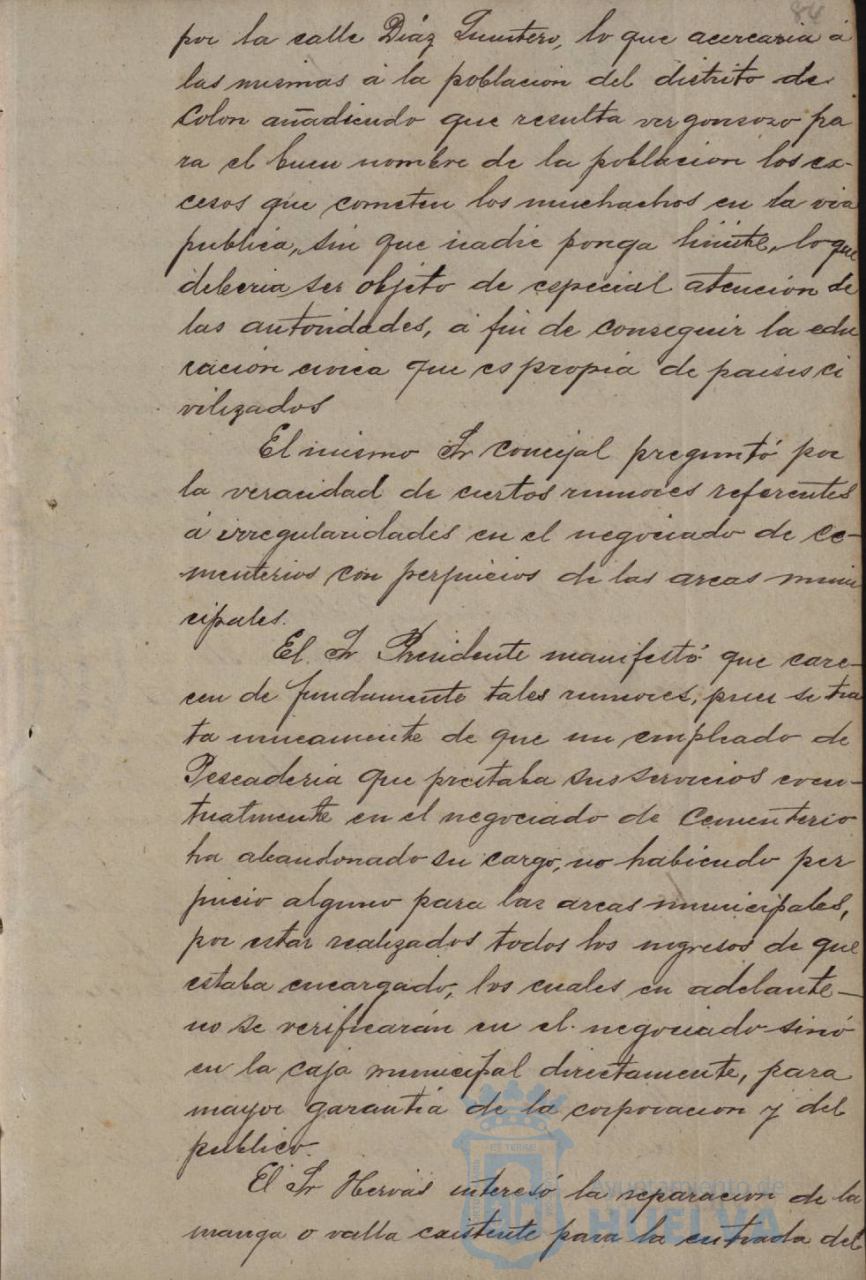 84
por la calle Diáz Quintero, lo que acercaria á
las mismas á la poblacion del distrito de
Colon añadiendo que resulta vergonsozo pa
ra el buen nombre de la poblacion los ex-
cesos que cometen los muchachos en la via
publica, sin que nadie ponga limite, lo que
deberia ser objeto de especial atencion de
las autoridades, á fin de conseguir la edu
cación civica que es propia de paises ci
vilizados
El mismo Sr Concejal preguntó por
la veracidad de ciertos rumores referentes
á irregularidades en el negociado de Ce-
menterios con perjuicios de las arcas muni
cipales.
El Sr Presidente manifestó que care-
cen de fundamento tales rumores, pues se tra
ta unicamente de que un empleado de
Pescaderia que prestaba sus servicios even-
tualmente en el negociado de Cementerio
ha abandonado su cargo, no habiendo per
juicio alguno para las arcas municipales,
por estar realizados todos los ingresos de que
estaba encargado, los cuales en adelante-
no se verificarán en el negociado sinó
en la caja municipal directamente, para
mayor garantia de la corporacion y del
publico.
El Sr Hervás interesó la reparacion de la
manga o valla existente para la entrada del
Ayuntamiento de
HUELVA